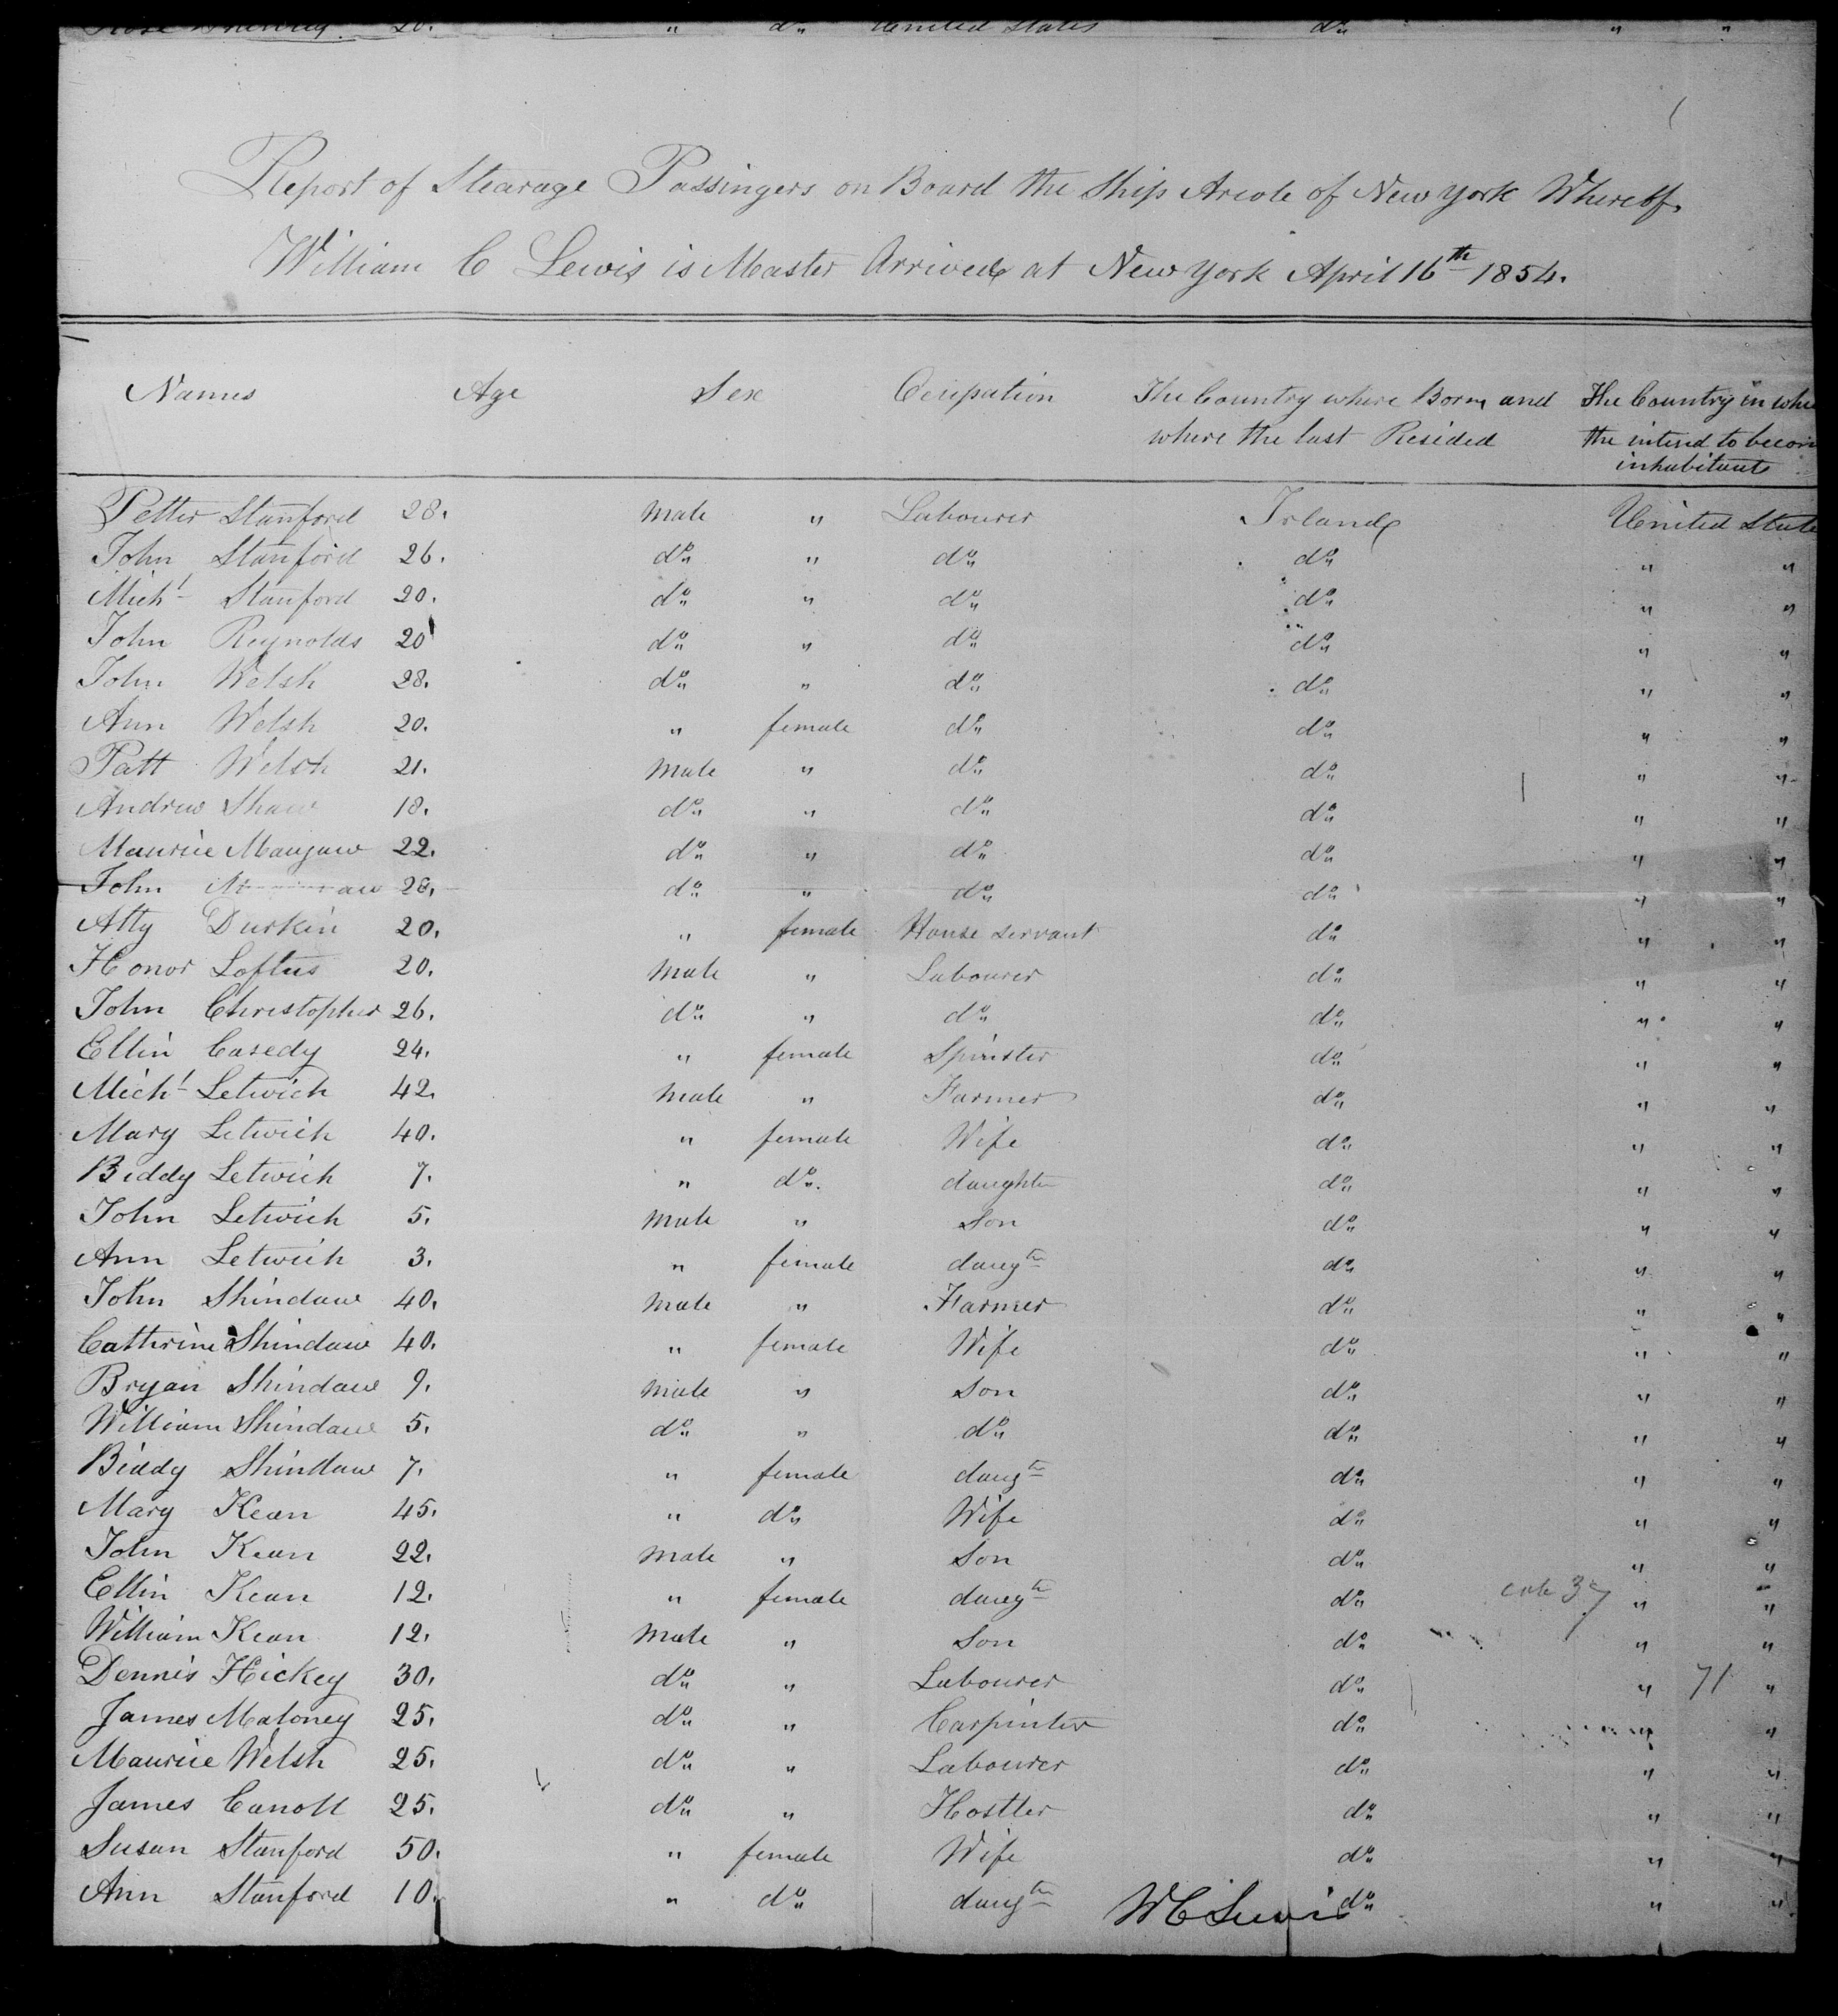 20. " do United States do " "
Report of Stearage Passingers on Board the Ship Arcole of New York Whereof.
William C Lewis is Master Arrived at New York April 16th 1854.
Names Age Sex Occupation The Country where Born and The Country in whi
where the last Resided the intend to becom
inhabitants
Petter Stanford 28. Male " Labourer Irland United State
John Stanford 26. do " do do " "
Michl Stanford 20. do " do do " "
John Reynolds 20 do " do do " "
John Welsh 28. do " do do " "
Ann Welsh 20. " female do do " "
Patt Welsh 21. Male " do do " "
Andrew Shaw 18. do " do do " "
Maurice Mangaw 22. do " do do " "
John 28. do " do do " "
Atty Durkin 20. " female House servant do " "
Honor Loftus 20. Male " Labourer do " "
John Christopher 26. do " do do " "
Ellin Casedy 24. " female Spinster do " "
Michl Letwich 42. Male " Farmer do " "
Mary Letwich 40. " female Wife do " "
Biddy Letwich 7. " do. daughter do " "
John Letwich 5. Male " Son do " "
Ann Letwich 3. " female daugtr do " "
John Shindaw 40. Male " Farmer do " "
Catherine Shindaw 40. " female Wife do " "
Bryan Shindaw 9. Male " Son do " "
William Shindaw 5. do " do do " "
Biddy Shindaw 7. " female daugtr do " "
Mary Kean 45. " do Wife do " "
John Kean 22. Male " Son do " "
Ellin Kean 12. " female daugtr do 37 " "
William Kean 12. Male " Son do " "
Dennis Hickey 30. do " Labourer do " 71 "
James Maloney 25. do " Carpinter do " "
Maurice Welsh 25. do " Labourer do " "
James Canoll 25. do " Hostler do " "
Susan Stanford 50. " female Wife do " "
Ann Stanford 10. " do daugtr do " "
W C Lewis